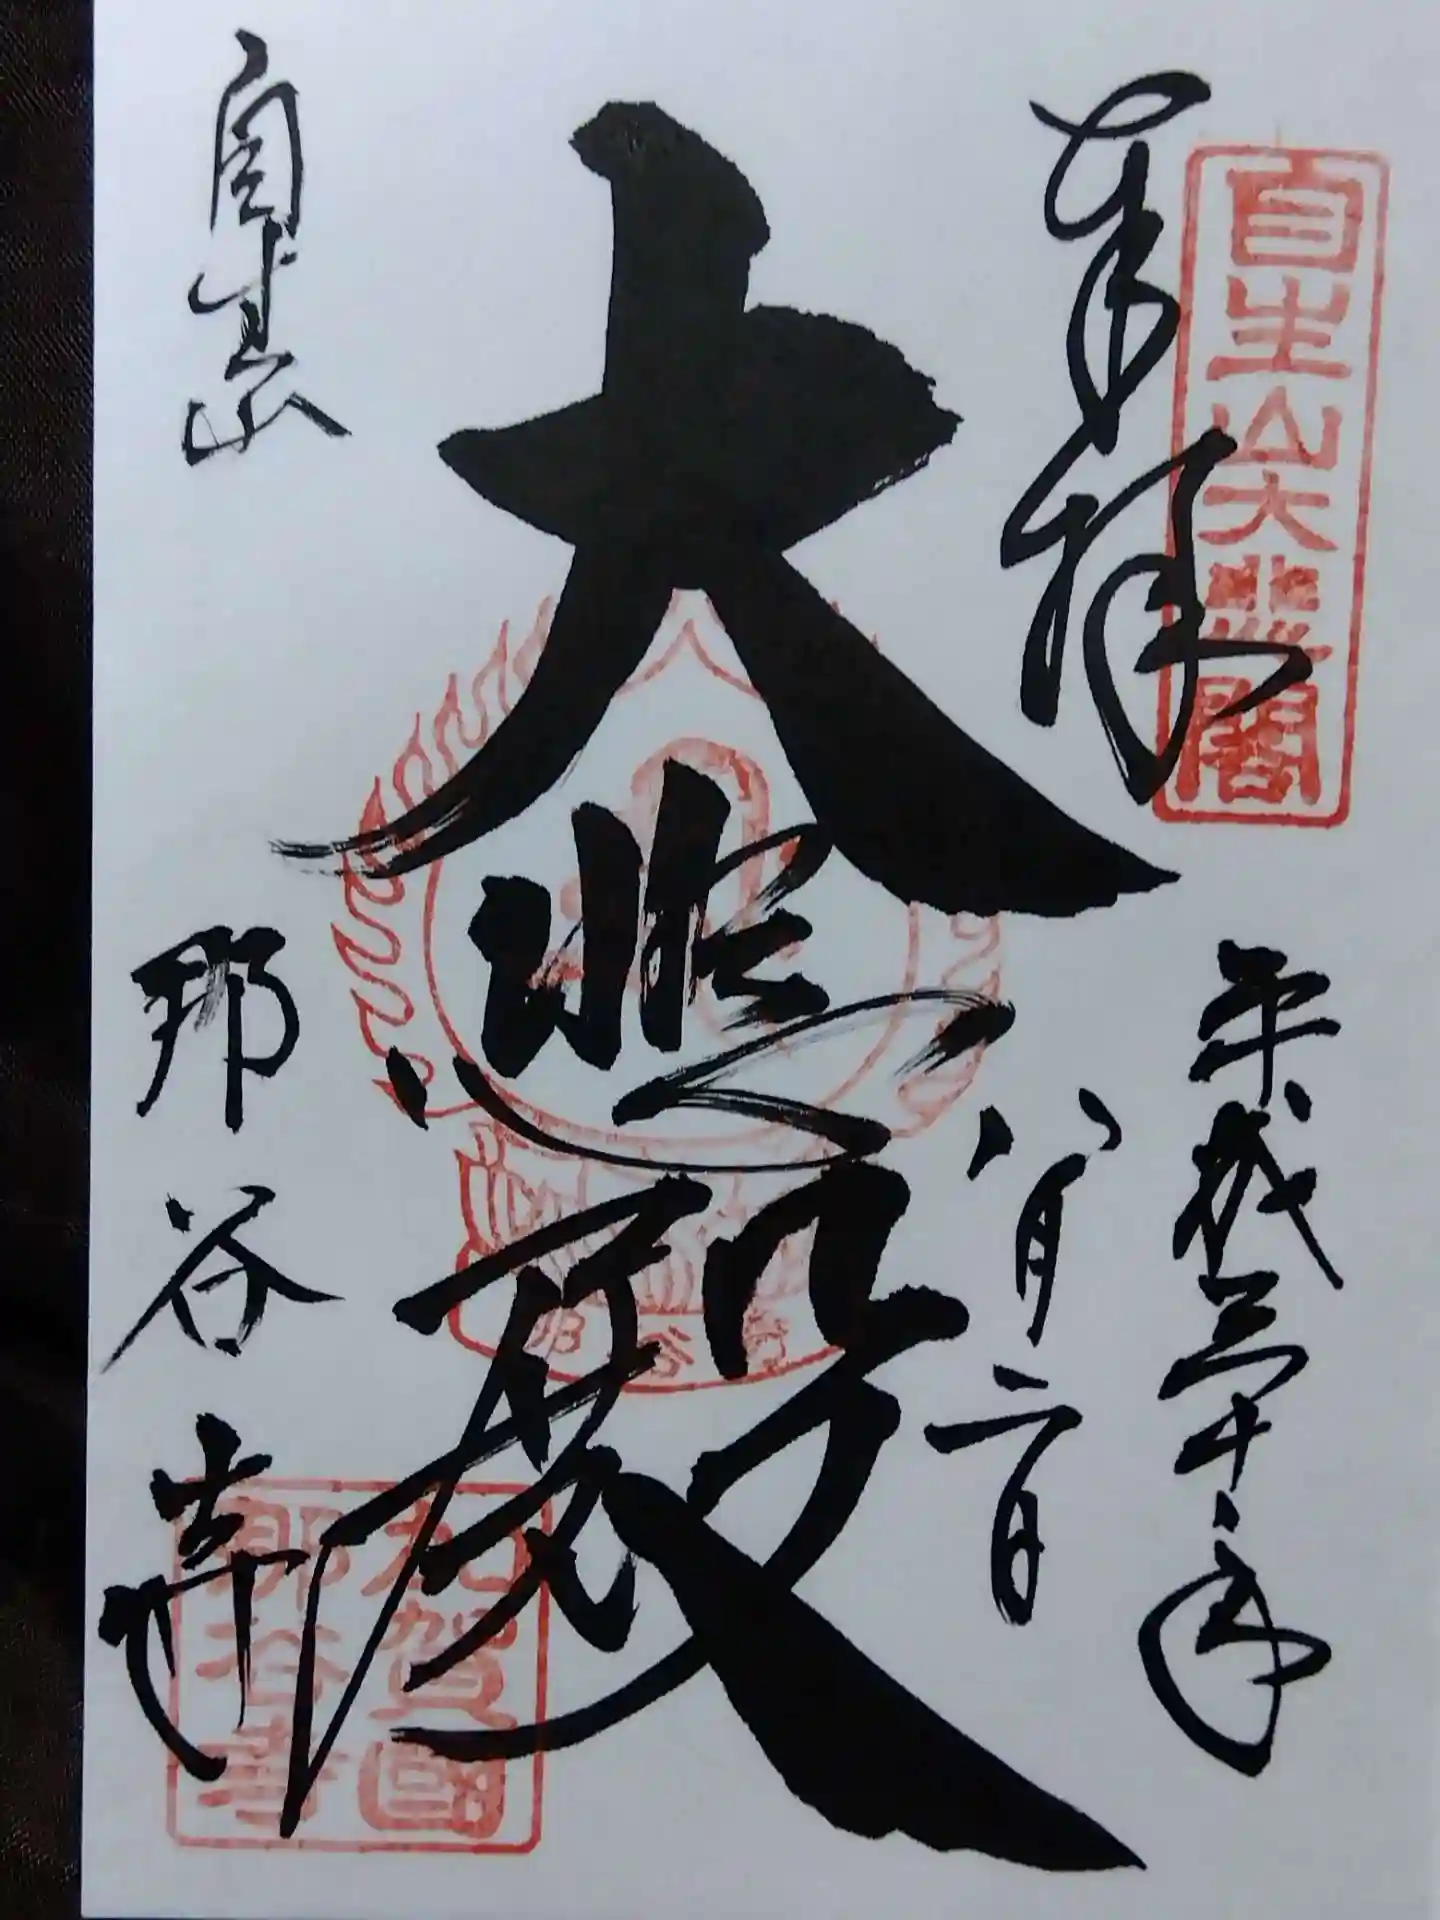 自生山大悲閣
奉拝
平成三十年
八月二日
大悲殿
那谷寺
自生山
那谷寺
加賀國
那谷寺